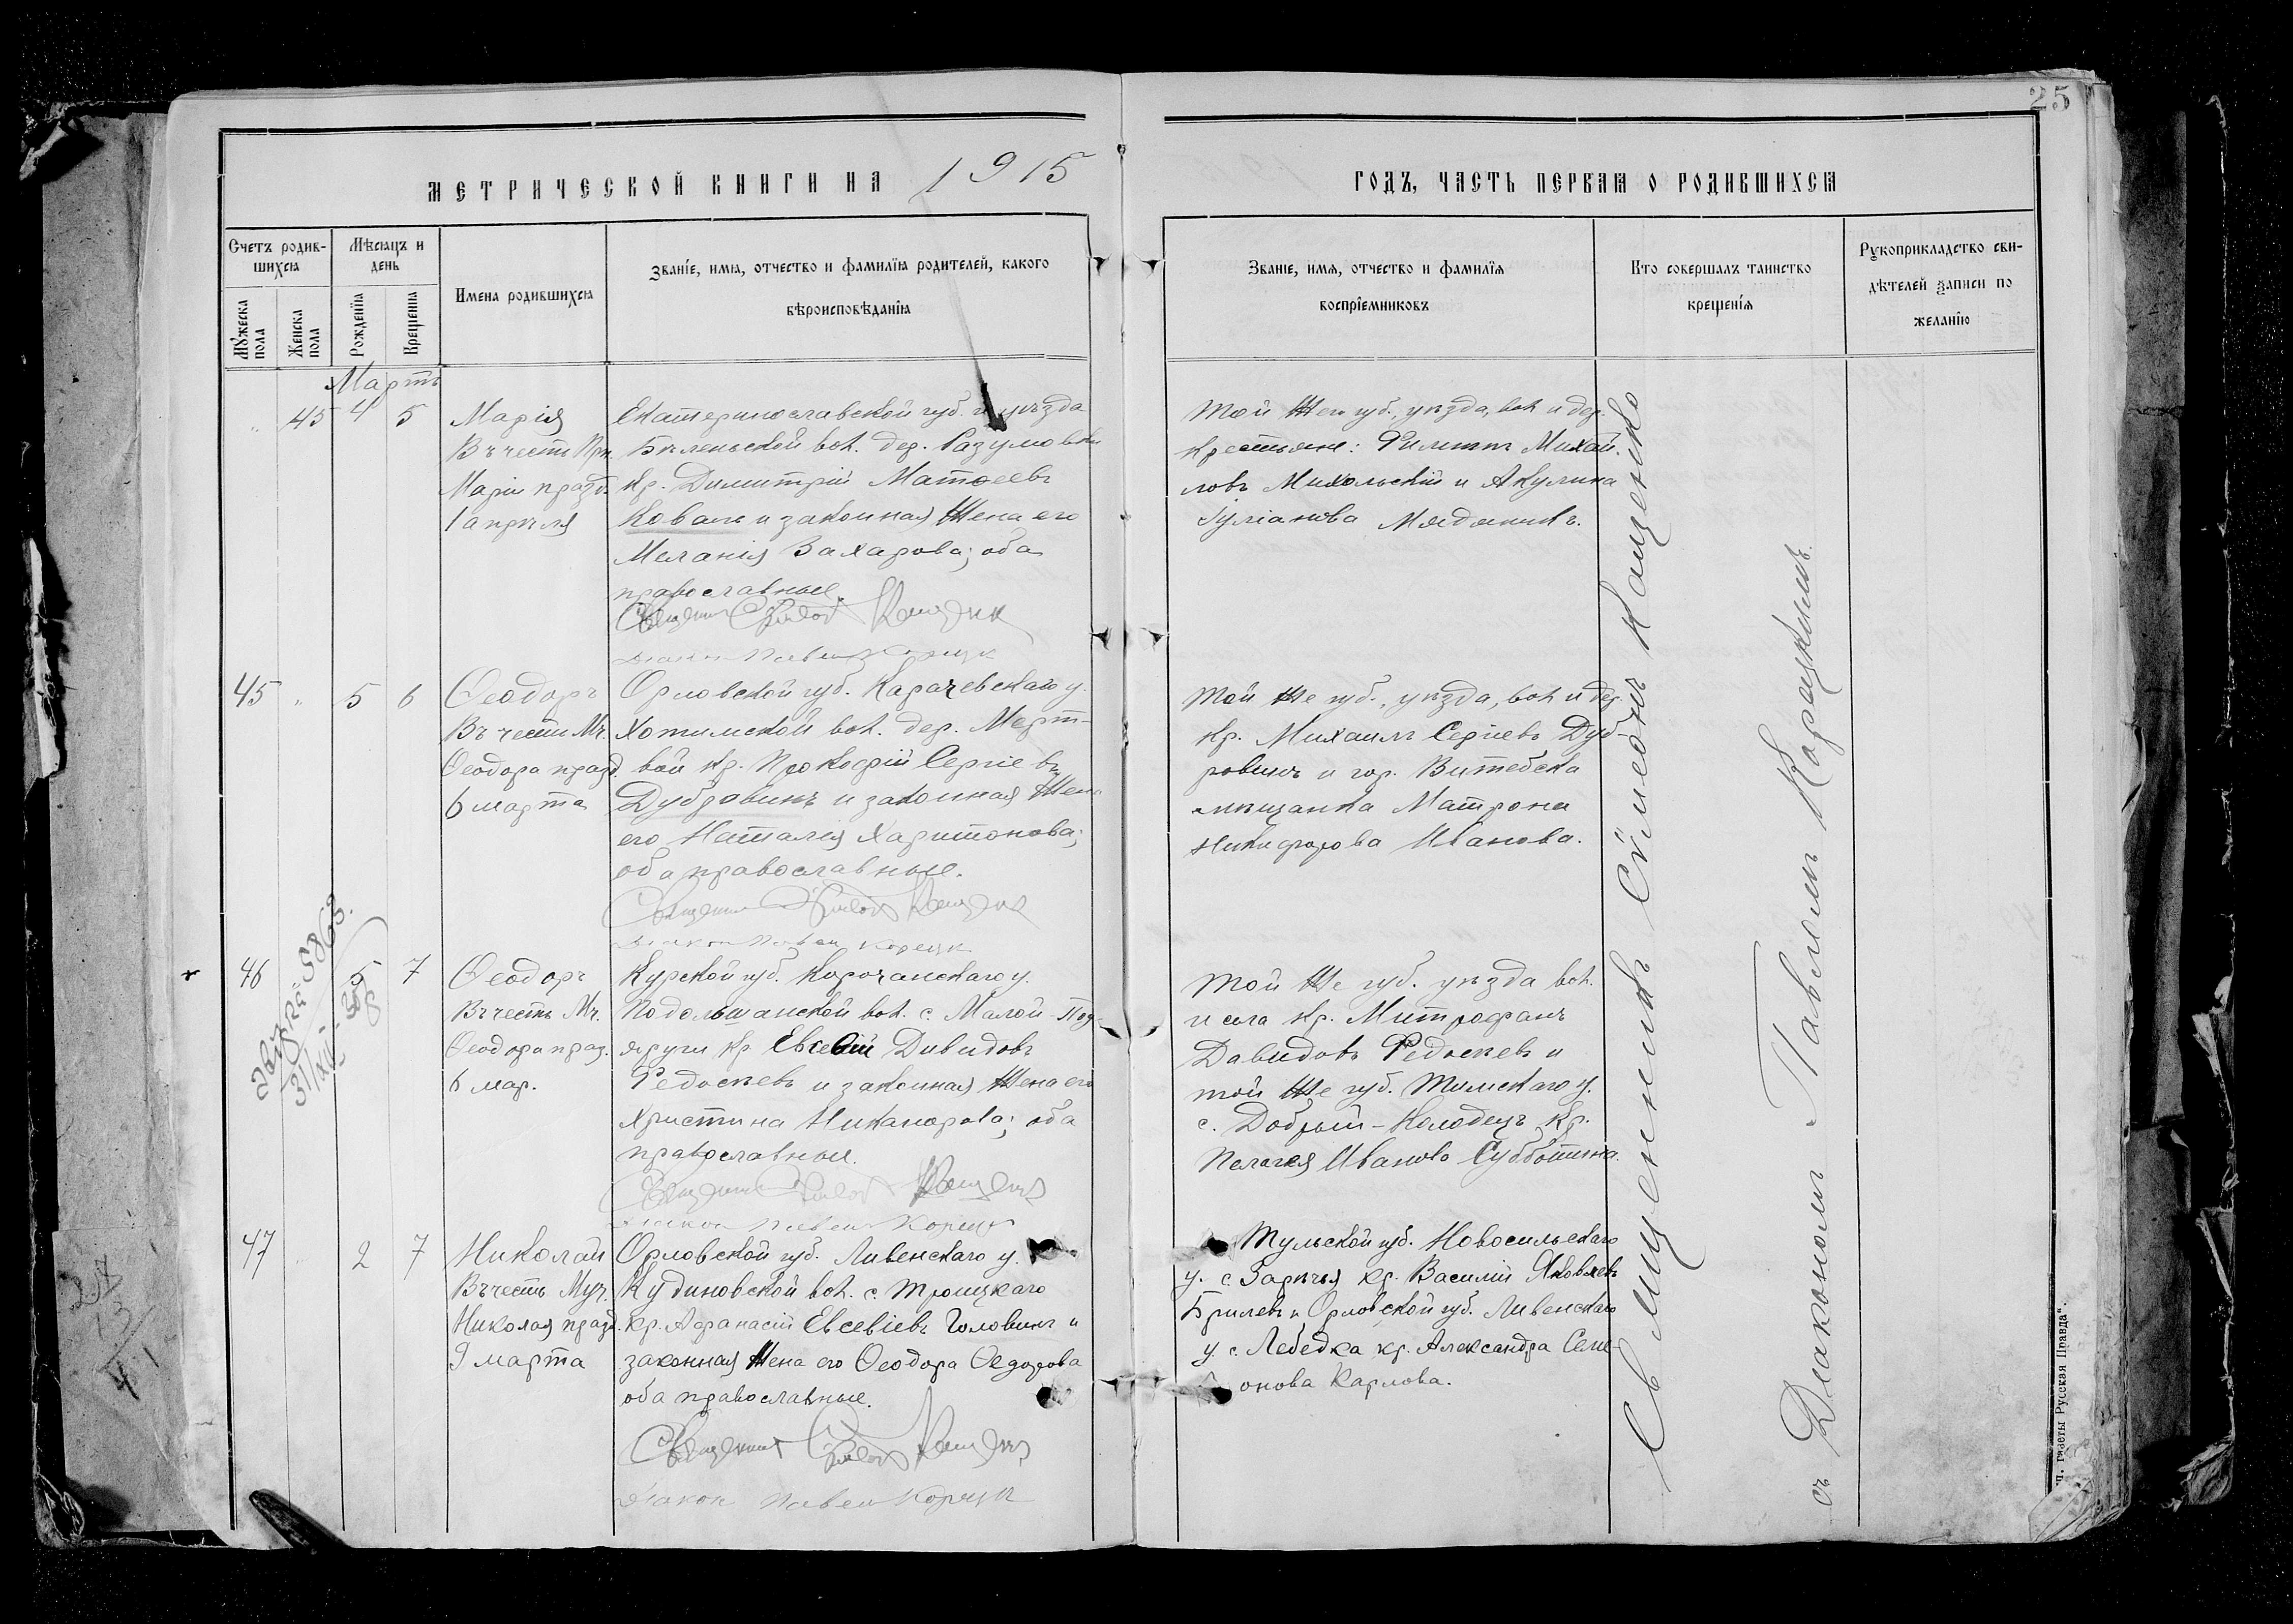 25
МЕТРИЧЕСКОЙ КНИГИ НА 1915
ГОДЪ, ЧАСТЬ ПЕРВАЯ О РОДИВШИХСЯ
Счетъ родив-
шихся
Мѣсяцъ и
день
Мужеска
пола
Женска
пола
Рожденія
Крещенія
Имена родившихся
Званіе, имя, отчество и фамилія родителей, какого
вѣроисповѣданія
Званіе, имя, отчество и фамилія
воспріемниковъ
Кто совершалъ таинство
крещенія
Рукоприкладство сви-
дѣтелей записи по
желанію
Мартъ
45 4 5
Марія
Въ честь Пр.
Маріи празд.
1 апрѣля
Екатеринославской губ. и уѣзда
Бѣленьской вол. дер. Разумовки
кр. Димитрій Матѳеевъ
Коваль и законная жена его
Меланія Захарова; оба
православные.
Священник Симеон Кащенк
Диакон Павел Корецк
Той же губ., уѣзда, вол. и дер.
крестьяне: Филиппъ Михай-
ловъ Михольскій и Акулина
Іуліанова
45 5 6
Ѳеодоръ
Въ честь Мч.
Ѳеодора празд.
6 марта
Орловской губ. Карачевскаго у.
Хотимской вол. дер. Мерт-
вой кр. Прокофій Сергіевъ
Дубровинъ и законная жена
его Наталія Харитонова;
оба православные.
Священник Симеон Кащенк
Диакон Павел Корецк
Той же губ., уѣзда, вол. и дер.
кр. Михаилъ Сергіевъ Дуб-
ровинъ и гор. Витебска
мѣщанка Матрона
Никифорова Иванова.
46 5 7
Ѳеодоръ
Въ честь Мч.
Ѳеодора праз.
6 мар.
Курской губ. Корочанскаго у.
Подольшанской вол. с. Малой-Под-
яруги кр. Евсевій Давидовъ
Федосѣевъ и законная жена его
Христина Никанорова; оба
православные.
Священник Симеон Кащенк
Диакон Павел Корецк
Той же губ. уѣзда вол.
и села кр. Митрофанъ
Давидовъ Федосѣевъ и
той же губ. Тимскаго у.
с. Добрый-Колодецъ кр.
Пелагея Иванова Субботина.
47 2 7
Николай
Въ честь Муч.
Николая празд.
9 марта
Орловской губ. Ливенскаго у.
Кудиновской вол. с. Троицкаго
кр. Аѳанасій Евсевіевъ Головинъ и
законная жена его Ѳеодора Ѳедорова
оба православные.
Священник Симеон Кащенк
Диакон Павел Корецк
Тульской губ. Новосильскаго
у. с. Зарѣчья кр. Василій Яковлевъ
Брилевъ и Орловской губ. Ливенскаго
у. с. Лебедка кр. Александра Семе-
онова Карлова.
Священникъ Сѵмеонъ Кащенко
съ Діакономъ Павломъ Корецкимъ.
ч. газеты Русская Правда".